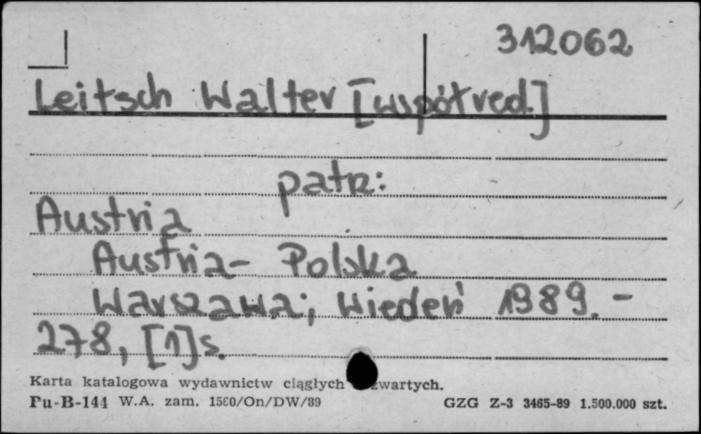 312062
Leitsch Walter [współred.]
patrz:
Austria
Austria - Polska
Warszawa; Wiedeń 1989. -
278, [1]s.
Karta katalogowa wydawnictw ciągłych zwartych.
Pu-B-144 W.A. zam. 1560/On/DW/89 GZG Z-3 3465-89 1.500.000 szt.